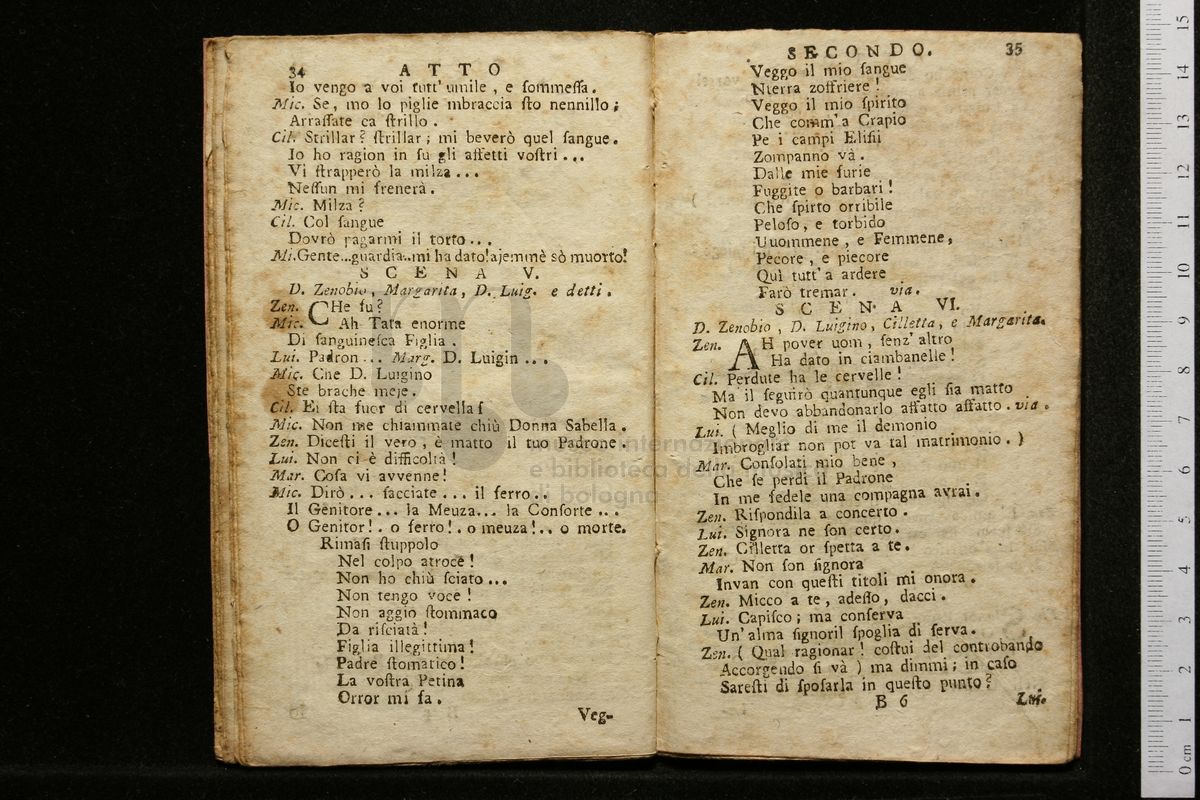 34 ATTO
Io vengo a voi tutt' umile, e sommessa.
Mic. Se, mo lo piglie mbraccia sto nennillo;
Arrassate ca strillo.
Cil. Strillar? strillar; mi beverò quel sangue.
Io ho ragion in su gli affetti vostri...
Vi strapperò la milza...
Nessun mi frenerà.
Mic. Milza?
Cil. Col sangue
Dovrò pagarmi il torto...
Mi. Gente...guardia...mi ha dato!ajemmè sò muorto!
SCENA V.
D. Zenobio, Margarita, D. Luig. e detti.
Zen. CHe fu?
Mic. Ah Tata enorme
Di sanguinesca Figlia.
Lui. Padron... Marg. D. Luigin...
Mic. Che D. Luigino
Ste brache meje.
Cil. Ei sta fuor di cervella!
Mic. Non me chiammate chiù Donna Sabella.
Zen. Dicesti il vero, è matto il tuo Padrone.
Lui. Non ci è difficoltà!
Mar. Cosa vi avvenne!
Mic. Dirò... facciate... il ferro..
Il Genitore... la Meuza... la Consorte...
O Genitor!. o ferro!. o meuza!.. o morte.
Rimasi stuppolo
Nel colpo atroce!
Non ho chiù sciato...
Non tengo voce!
Non aggio stommaco
Da risciatà!
Figlia illegittima!
Padre stomatico!
La vostra Petina
Orror mi fa.
Veg-
SECONDO. 35
Veggo il mio sangue
Nterra zoffriere!
Veggo il mio spirito
Che comm'a Crapio
Pe i campi Elisii
Zompanno và.
Dalle mie furie
Fuggite o barbari!
Che spirto orribile
Peloso, e torbido
Uuommene, e Femmene,
Pecore, e piecore
Quì tutt'a ardere
Farò tremar. via.
SCENA VI.
D. Zenobio, D. Luigino, Cilletta, e Margarita.
Zen. AH pover uom, senz' altro
Ha dato in ciambanelle!
Cil. Perdute ha le cervelle!
Ma il seguirò quantunque egli sia matto
Non devo abbandonarlo affatto affatto. via.
Lui. ( Meglio di me il demonio
Imbrogliar non pot va tal matrimonio. )
Mar. Consolati mio bene,
Che se perdi il Padrone
In me fedele una compagna avrai.
Zen. Rispondila a concerto.
Lui. Signora ne son certo.
Zen. Cilletta or spetta a te.
Mar. Non son signora
Invan con questi titoli mi onora.
Zen. Micco a te, adesso, dacci.
Lui. Capisco; ma conserva
Un'alma signoril spoglia di serva.
Zen. ( Qual ragionar! costui del controbando
Accorgendo si và ) ma dimmi; in caso
Saresti di sposarla in questo punto?
B 6 Lui.